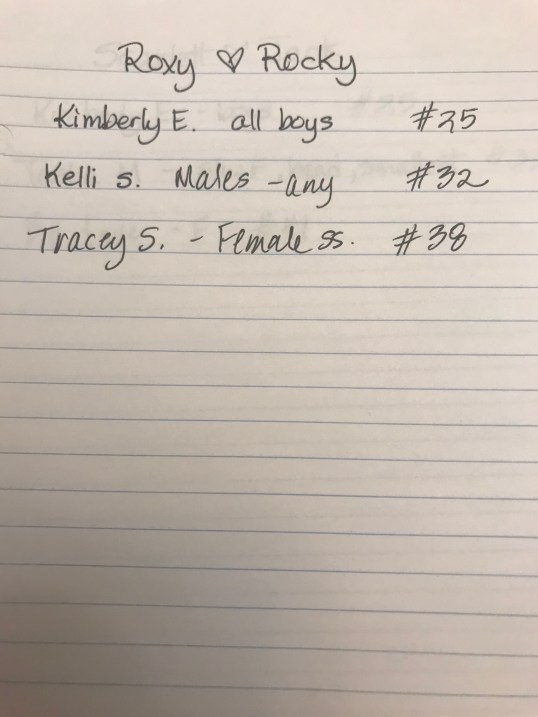 Roxy ♡ Rocky
Kimberly E. all boys #25
Kelli S. Males - any #32
Tracey S. - Female ss. #38